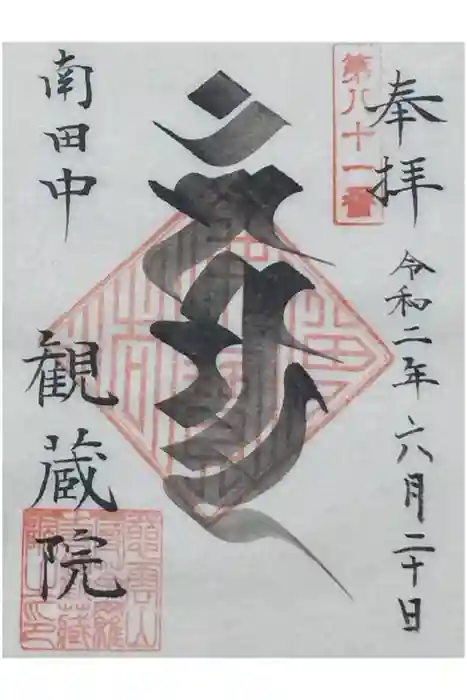 奉拝
第八十一番
令和二年六月二十日
南田中
観蔵院